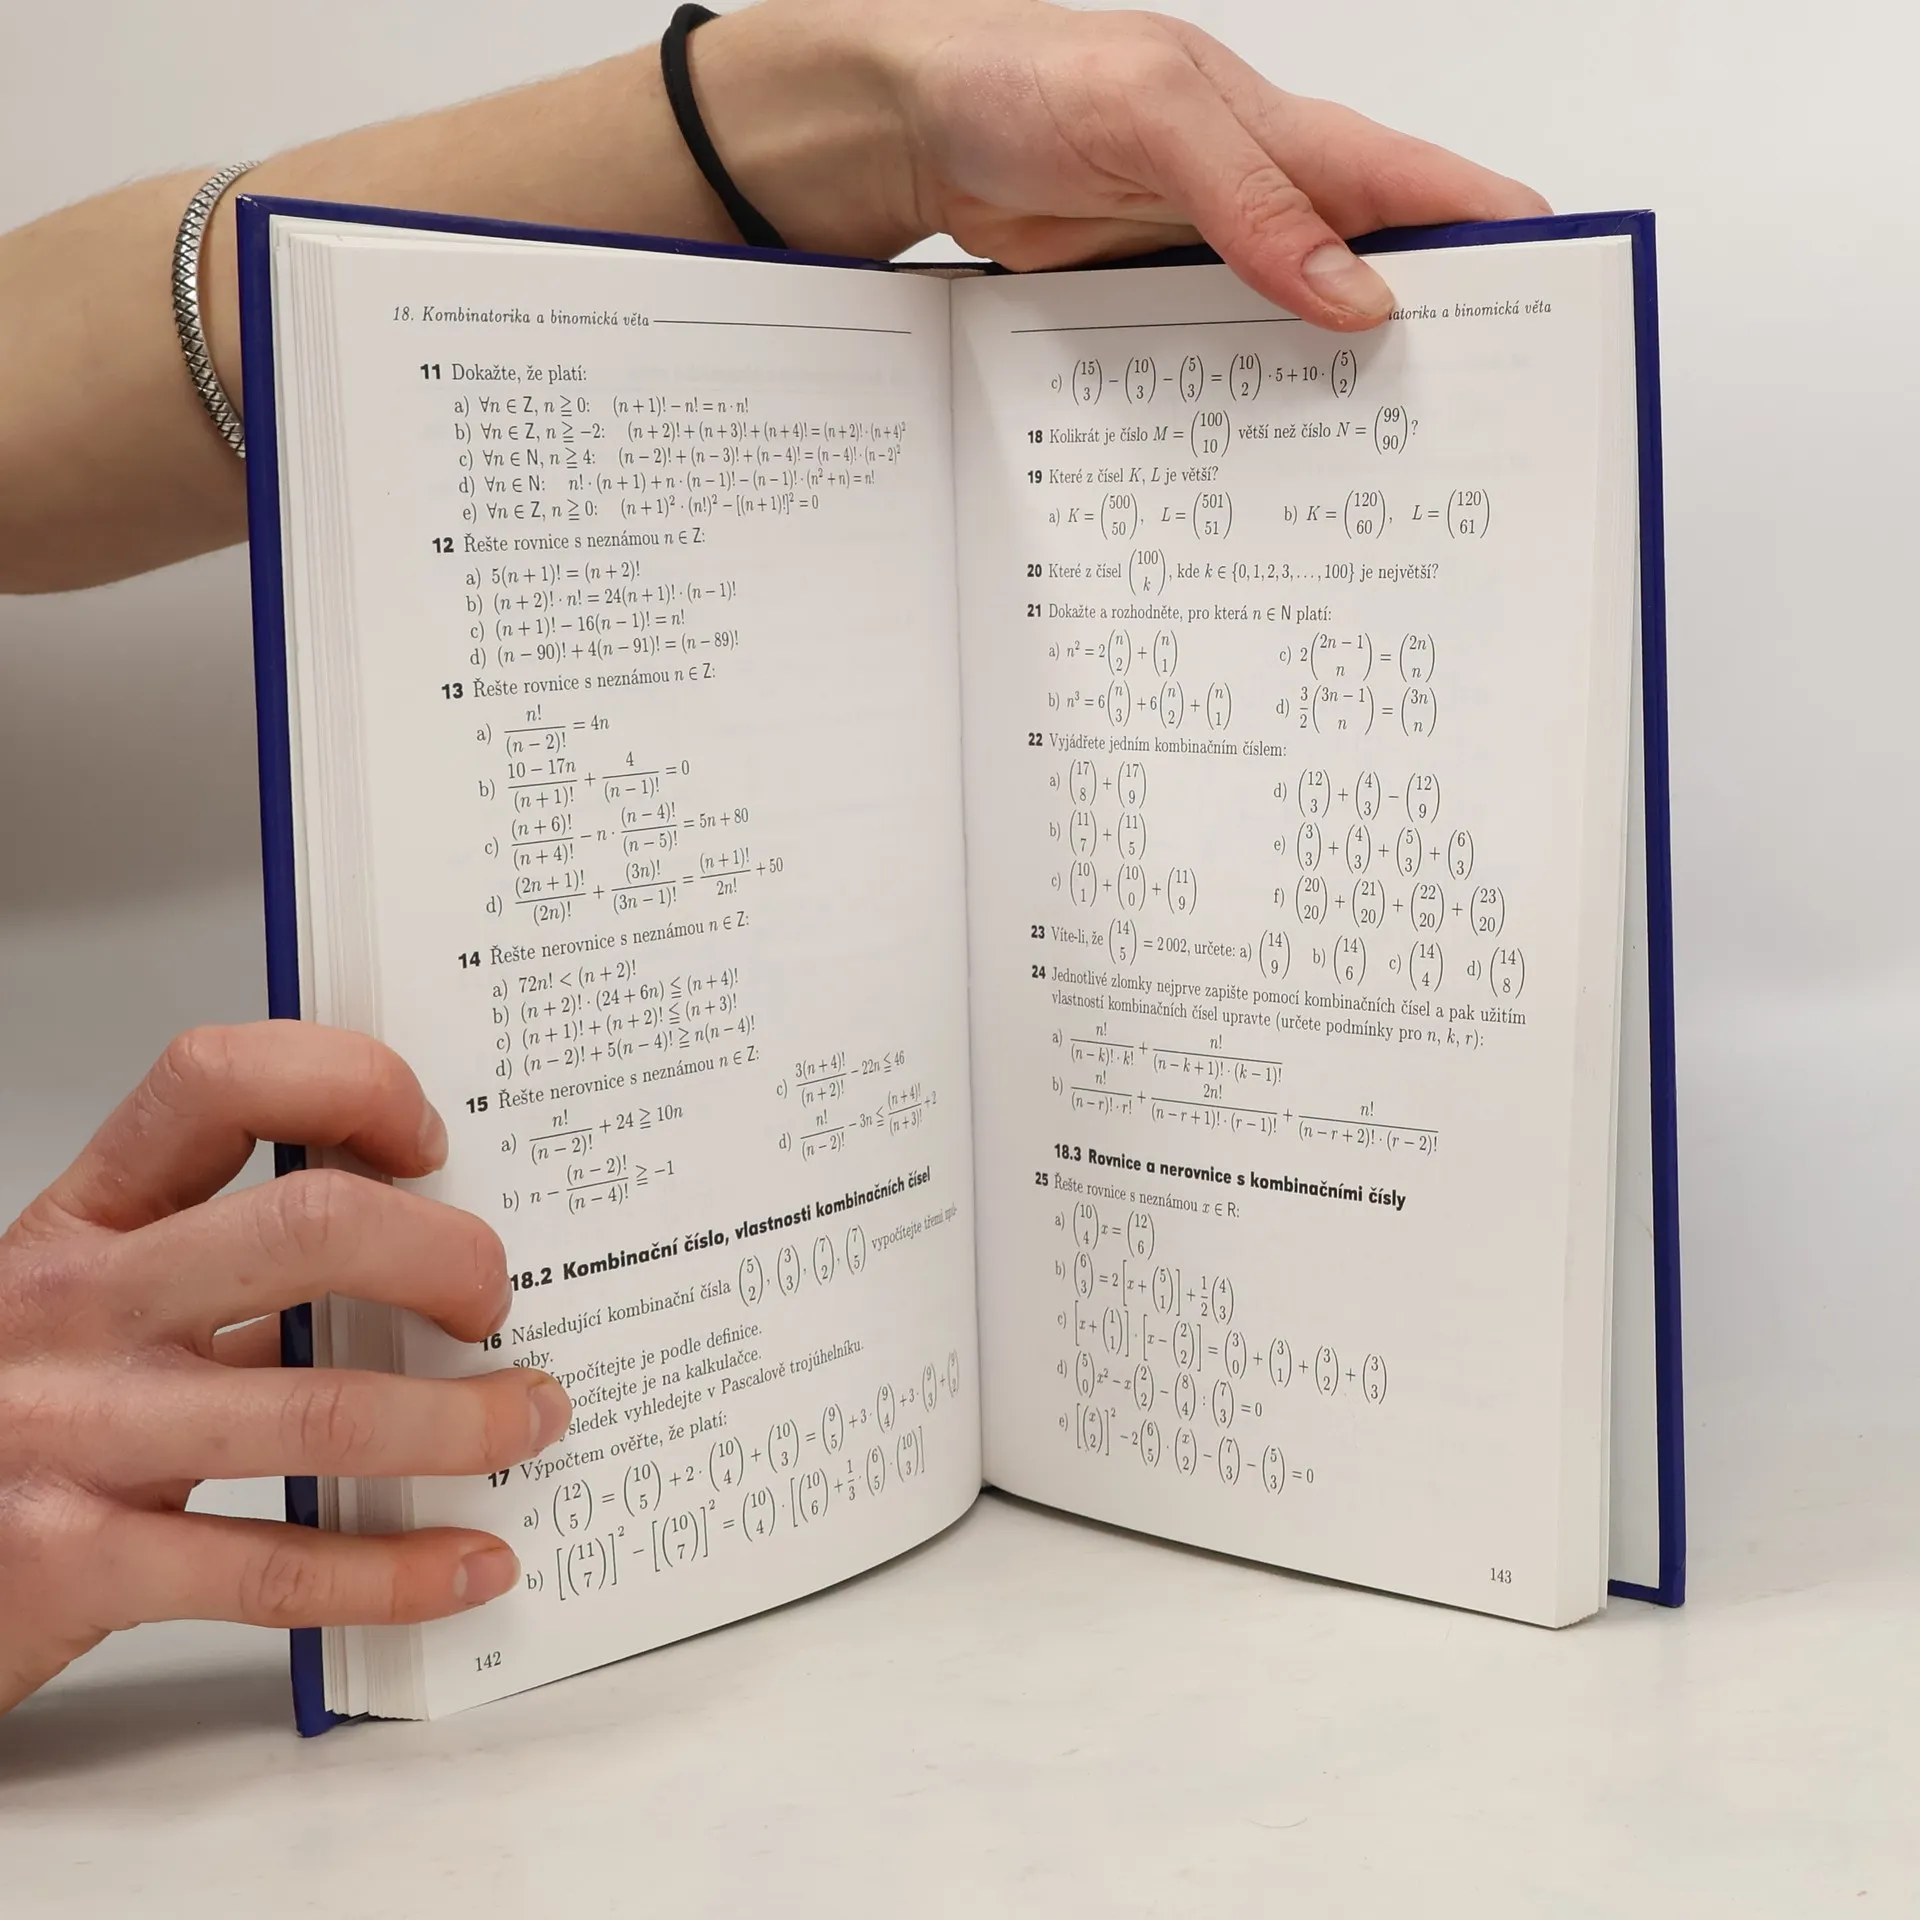 18. Kombinatorika a binomická věta
11 Dokažte, že platí:
a) ∀n ∈ Z, n ≧ 0: (n + 1)! − n! = n · n!
b) ∀n ∈ Z, n ≧ −2: (n + 2)! + (n + 3)! + (n + 4)! = (n + 2)! · (n + 4)²
c) ∀n ∈ N, n ≧ 4: (n − 2)! + (n − 3)! + (n − 4)! = (n − 4)! · (n − 2)²
d) ∀n ∈ N: n! · (n + 1) + n · (n − 1)! − (n − 1)! · (n² + n) = n!
e) ∀n ∈ Z, n ≧ 0: (n + 1)² · (n!)² − [(n + 1)!]² = 0
12 Řešte rovnice s neznámou n ∈ Z:
a) 5(n + 1)! = (n + 2)!
b) (n + 2)! · n! = 24(n + 1)! · (n − 1)!
c) (n + 1)! − 16(n − 1)! = n!
d) (n − 90)! + 4(n − 91)! = (n − 89)!
13 Řešte rovnice s neznámou n ∈ Z:
a) n!/(n − 2)! = 4n
b) (10 − 17n)/(n + 1)! + 4/(n − 1)! = 0
c) (n + 6)!/(n + 4)! − n · (n − 4)!/(n − 5)! = 5n + 80
d) (2n + 1)!/(2n)! + (3n)!/(3n − 1)! = (n + 1)!/2n! + 50
14 Řešte nerovnice s neznámou n ∈ Z:
a) 72n! < (n + 2)!
b) (n + 2)! · (24 + 6n) ≦ (n + 4)!
c) (n + 1)! + (n + 2)! ≦ (n + 3)!
d) (n − 2)! + 5(n − 4)! ≧ n(n − 4)!
15 Řešte nerovnice s neznámou n ∈ Z:
a) n!/(n − 2)! + 24 ≧ 10n
b) n − (n − 2)!/(n − 4)! ≧ −1
c) 3(n + 4)!/(n + 2)! − 22n ≦ 46
d) n!/(n − 2)! − 3n ≦ (n + 4)!/(n + 3)! + 2
18.2 Kombinační číslo, vlastnosti kombinačních čísel
16 Následující kombinační čísla (5 2), (3 3), (7 2), (7 5) vypočítejte třemi způ-
soby.
vypočítejte je podle definice.
počítejte je na kalkulačce.
sledek vyhledejte v Pascalově trojúhelníku.
17 Výpočtem ověřte, že platí:
a) (12 5) = (10 5) + 2 · (10 4) + (10 3) = (9 5) + 3 · (9 4) + 3 · (9 3) + (9 2)
b) [(11 7)]² − [(10 7)]² = (10 4) · [(10 6) + 1/3 · (6 5) · (10 3)]
142
atorika a binomická věta
c) (15 3) − (10 3) − (5 3) = (10 2) · 5 + 10 · (5 2)
18 Kolikrát je číslo M = (100 10) větší než číslo N = (99 90)?
19 Které z čísel K, L je větší?
a) K = (500 50), L = (501 51) b) K = (120 60), L = (120 61)
20 Které z čísel (100 k), kde k ∈ {0, 1, 2, 3, ..., 100} je největší?
21 Dokažte a rozhodněte, pro která n ∈ N platí:
a) n² = 2(n 2) + (n 1)
b) n³ = 6(n 3) + 6(n 2) + (n 1)
c) 2(2n − 1 n) = (2n n)
d) 3/2 (3n − 1 n) = (3n n)
22 Vyjádřete jedním kombinačním číslem:
a) (17 8) + (17 9)
b) (11 7) + (11 5)
c) (10 1) + (10 0) + (11 9)
d) (12 3) + (4 3) − (12 9)
e) (3 3) + (4 3) + (5 3) + (6 3)
f) (20 20) + (21 20) + (22 20) + (23 20)
23 Víte-li, že (14 5) = 2 002, určete: a) (14 9) b) (14 6) c) (14 4) d) (14 8)
24 Jednotlivé zlomky nejprve zapište pomocí kombinačních čísel a pak užitím
vlastností kombinačních čísel upravte (určete podmínky pro n, k, r):
a) n!/((n − k)! · k!) + n!/((n − k + 1)! · (k − 1)!)
b) n!/((n − r)! · r!) + 2n!/((n − r + 1)! · (r − 1)!) + n!/((n − r + 2)! · (r − 2)!)
18.3 Rovnice a nerovnice s kombinačními čísly
25 Řešte rovnice s neznámou x ∈ R:
a) (10 4)x = (12 6)
b) (6 3) = 2[x + (5 1)] + 1/2 (4 3)
c) [x + (1 1)] · [x − (2 2)] = (3 0) + (3 1) + (3 2) + (3 3)
d) (5 0)x² − x(2 2) − (8 4) : (7 3) = 0
e) [(x 2)]² − 2(6 5) · (x 2) − (7 3) − (5 3) = 0
143